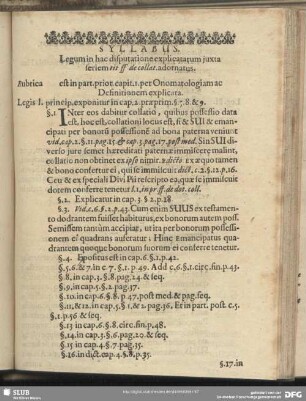 SYLLABUS.
Legum in hac disputatione explicatarum juxta
seriem tit. ff de collat. adornatus.
Rubrica est in part. prior. capit. 1. per Onomatologiam ac
Definitionem explicata.
Legis I. princip. exponitur in cap. 2. præprim. § 7. 8 & 9.
§. 1 INter eos dabitur collatio, quibus possessio data
est. hoc est, collationi locus est, si & SUI & eman-
cipati per bonorū possessionē ad bona paterna veniunt
vid. cap. 2. §. 11. pag. 25. & cap. 3. pag. 17. post med. Sin SUI di-
verso jure semet hæreditati paternæ immiscere malint,
collatio non obtinet ex ipso nimir. edicto ex æquo tamen
& bono confertur ei, qui se immiscuit dict. c. 2. §. 12. p. 16.
Ceu & ex speciali Divi Pii rescripto ea, quæ se immiscuit
dotem conferre tenetur l. 1. in pr. ff. de dot. coll.
§. 2. Explicatur in cap. 3 § 2. p. 28
§. 3. Vid. c. 6. §. 2. p. 43. Cum enim SUUS ex testamento
dodrantem fuisset habiturus, ex bonorum autem poss.
Semissem tantùm accipiat, utita per bonorum possessio-
nem ei quadrans auferatur: Hinc Emancipatus qua-
drantem quoque bonorum suorum ei conferre tenetur.
§. 4. Epositus est in cap. 6. §. 2. p. 42.
§. 5. 6. & 7. in c. 7. §. 1. p. 49. Add c. 6. §. 1. circ. fin. p. 43.
§. 8. in cap. 3. §. 8. pag. 24. & seq.
§. 9. in cap. 5. §. 2. pag. 37.
§. 10. in cap. 6. §. 8. p. 47. post med & pag. seq.
§. 11. & 12. in cap. 5. § 1. & 2. pag. 36. Et in part. post c. 5.
§. 2. p. 56 & seq.
§. 13 in cap. 6. §. 8. circ. fin. p. 48.
§. 14. in cap. 3. §. 6. pag. 20. & seq.
§. 15 in cap. 4. §. 7. pag. 35.
§. 16. in dict. cap. 4. §. 8. p. 35.
§. 17. in
SLUB
DFG